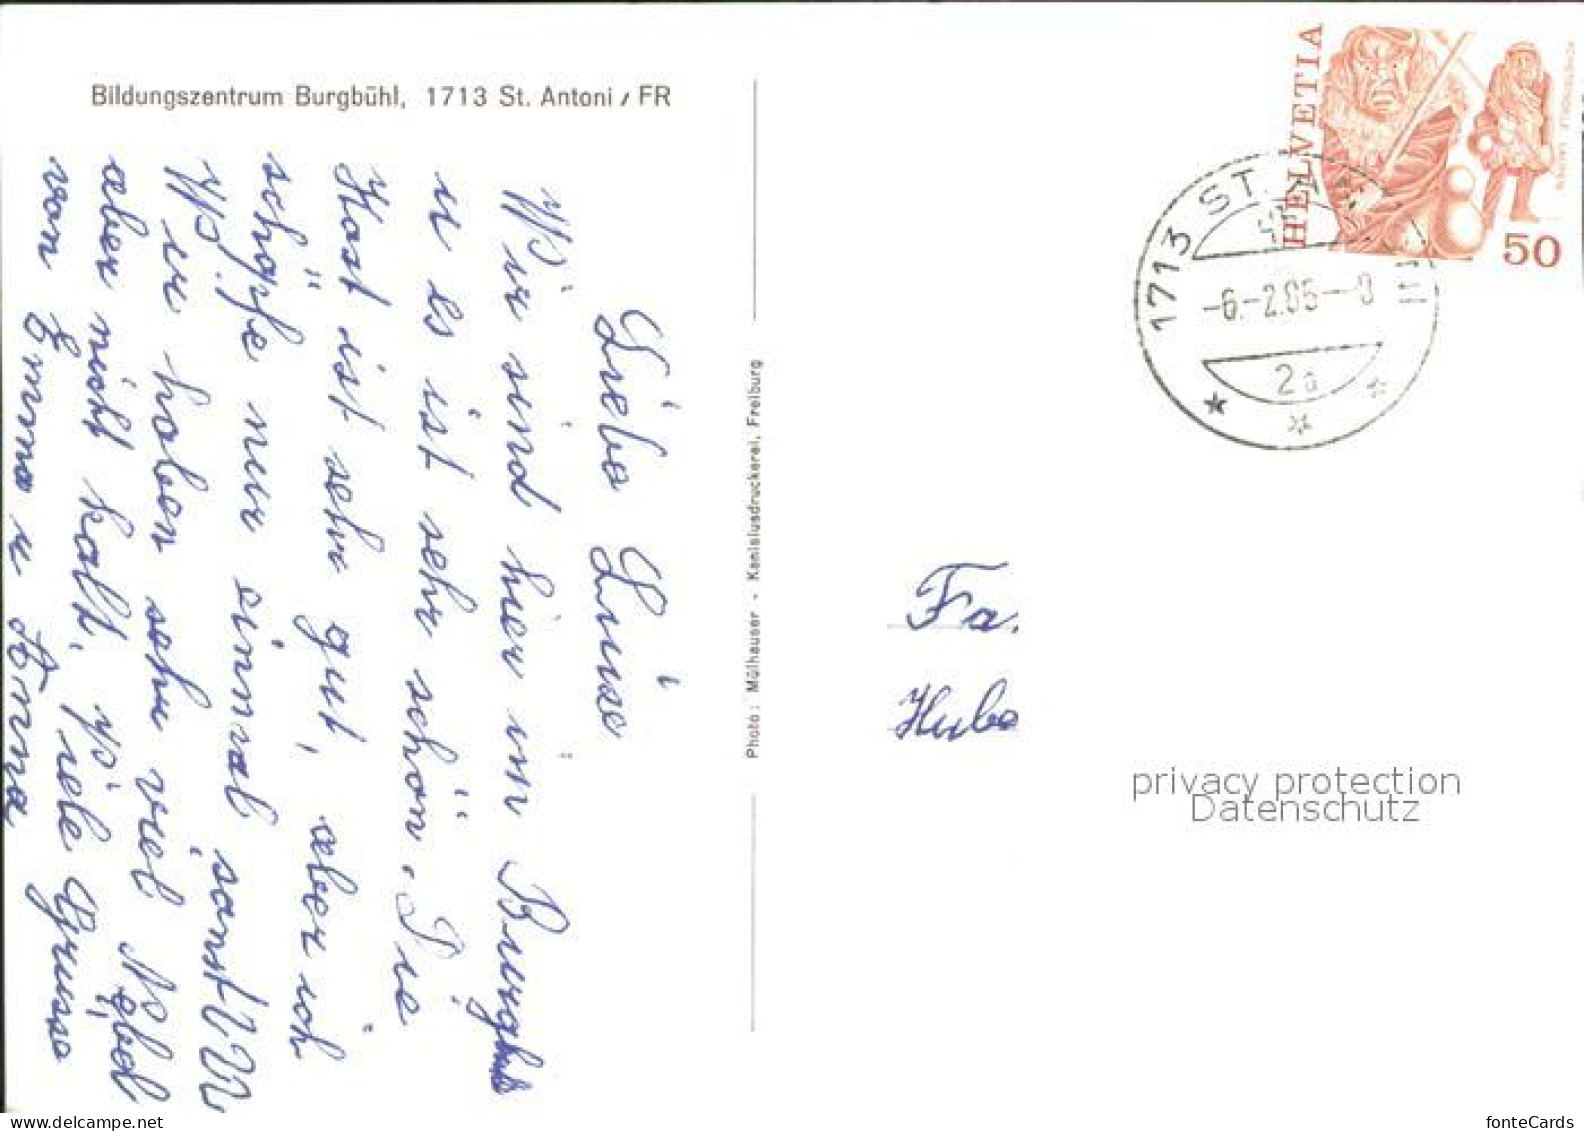 Bildungszentrum Burgbühl, 1713 St. Antoni / FR
Liebe Luise
Wir sind hier im Burgbühl
u es ist sehr schön. Die
Kost ist sehr gut, aber ich
schöpfe nur einmal, sonst
Wir haben sehr viel Nebel
aber nicht kalt, Viele Grüsse
von Emma u Anna
Photo: Mülhauser - Kanisiusdruckerei, Freiburg
HELVETIA
50
1713 ST. ANTONI
-6.-2.85--8
2a
Fa.
Hube
privacy protection
Datenschutz
fonteCards
www.delcampe.net